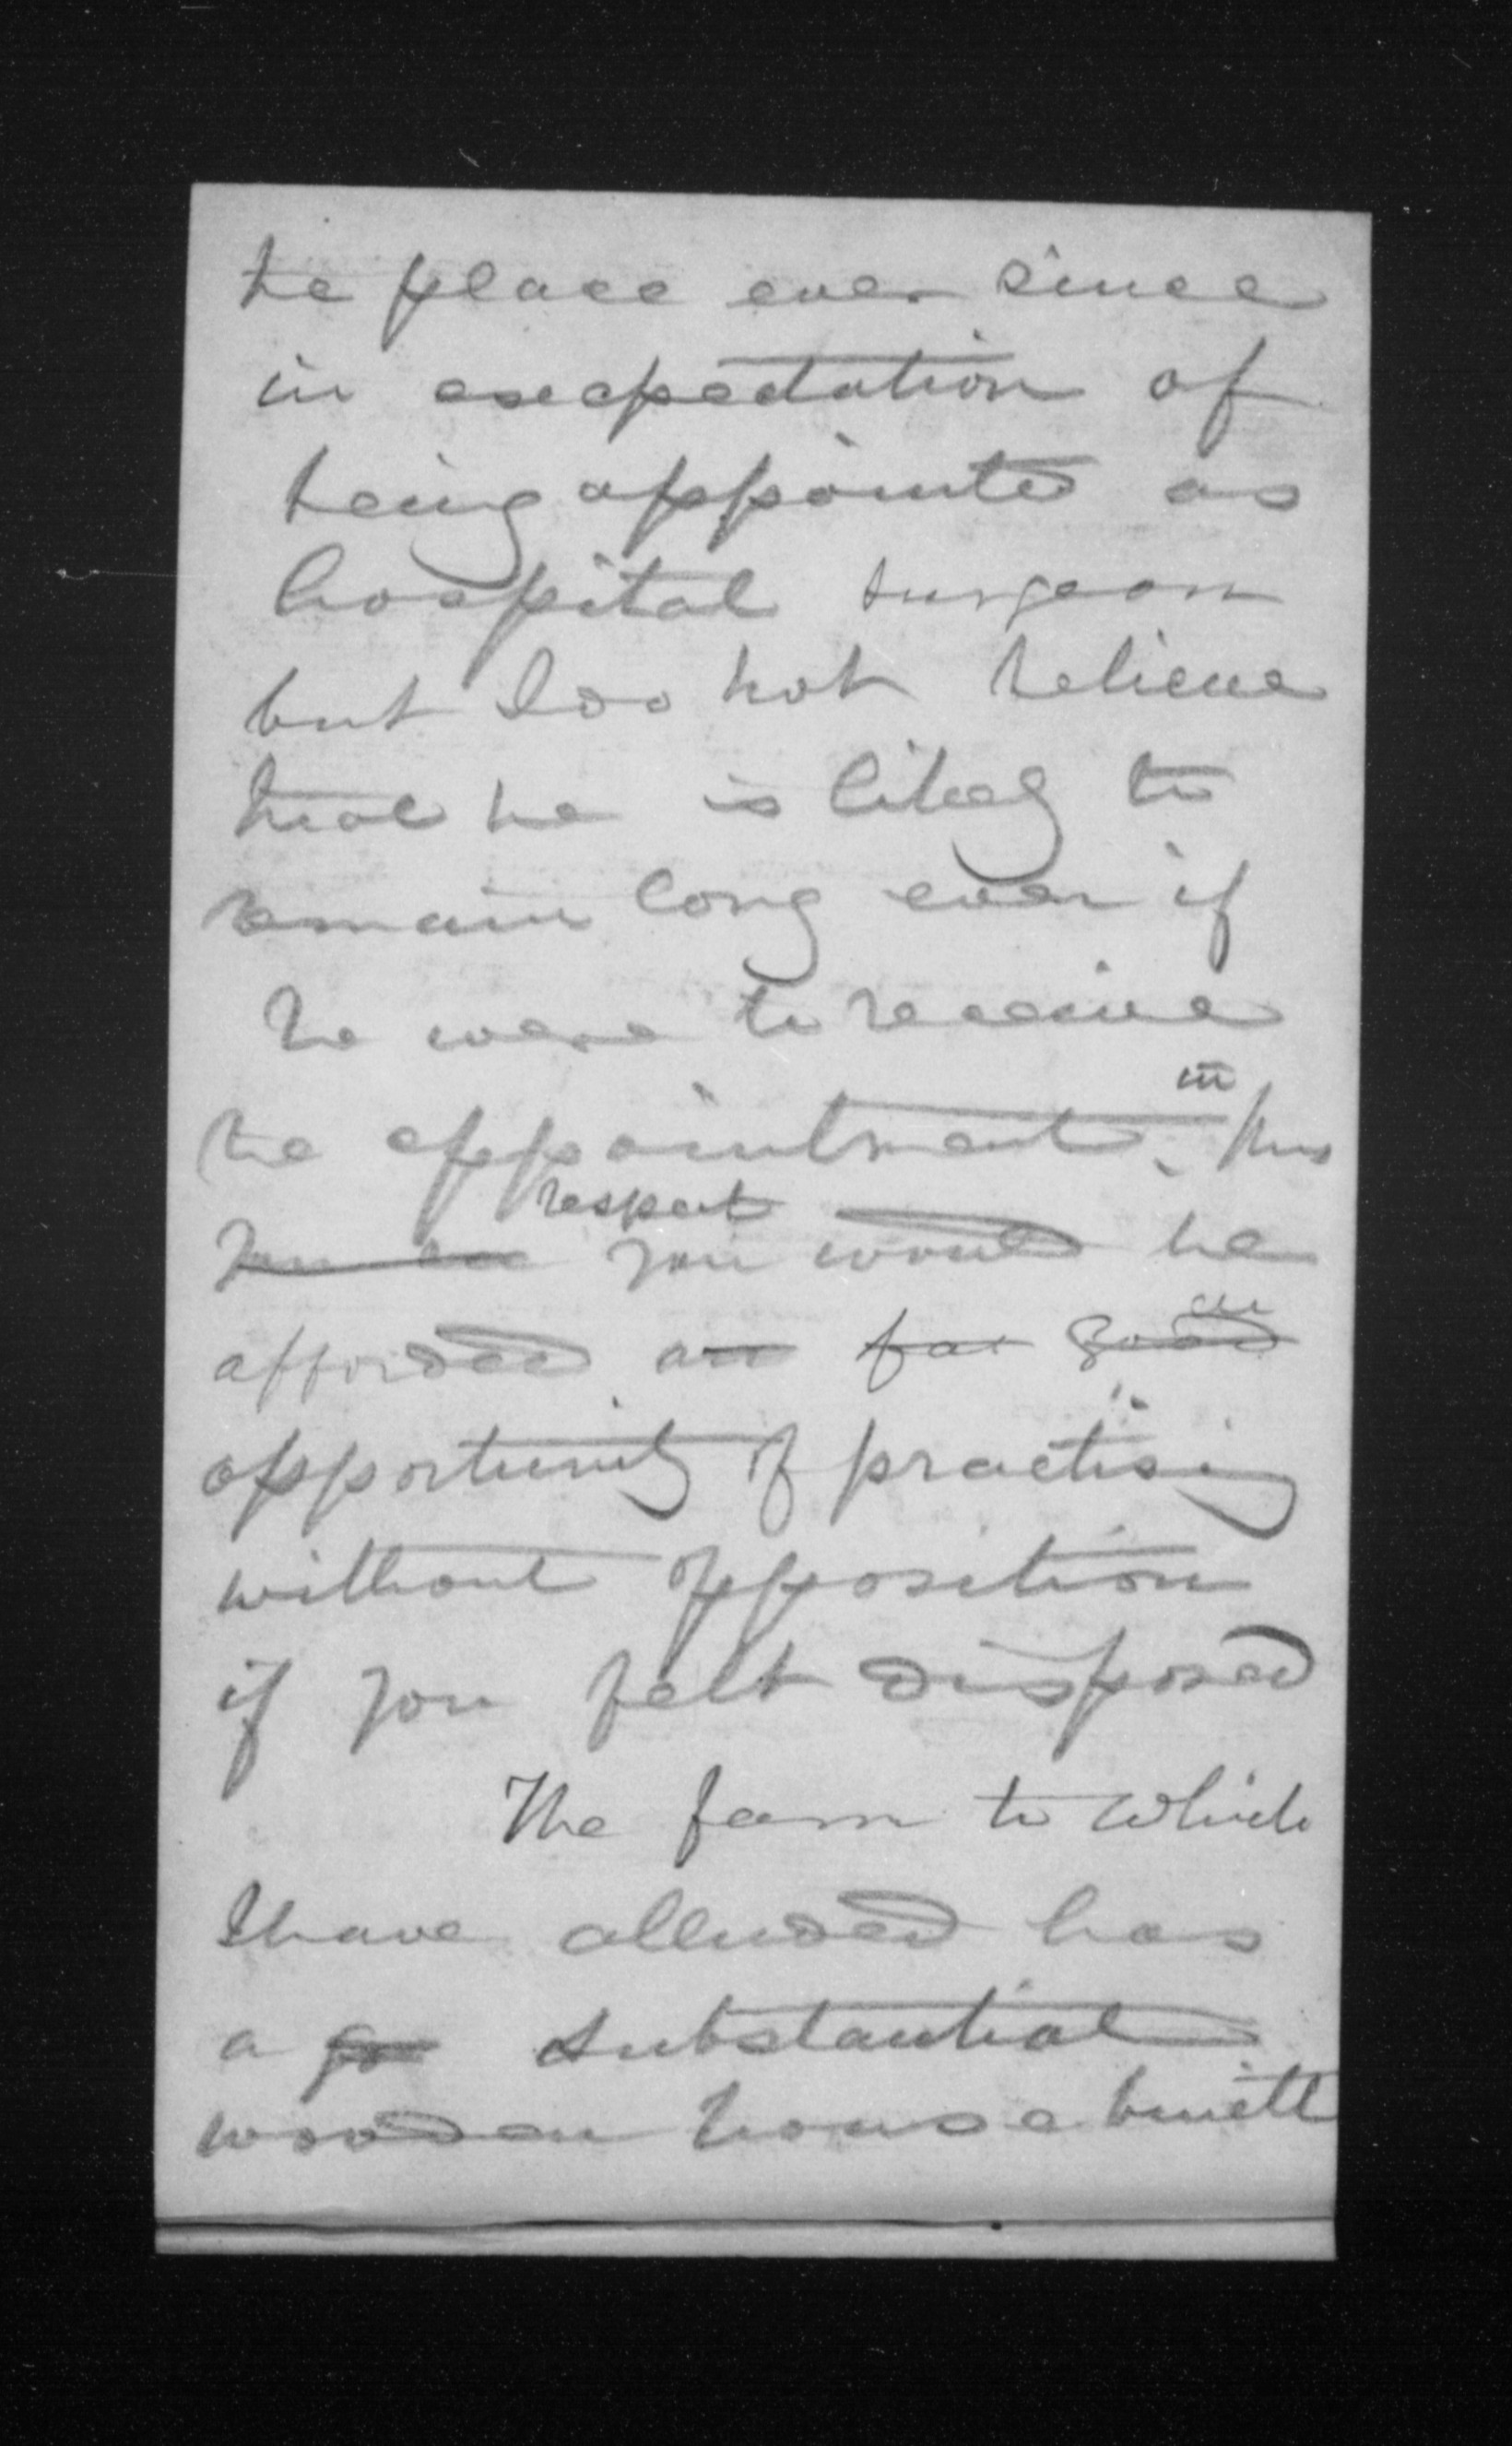 the place ever since
in exepectation of
being appointed as
hospital surgeon
but I do not believe
that he is likely to
remain long even if
he were to receive
the appointment. in this
respect
you would be
afforded an far good an
opportunity of practising
without opposition
if you felt disposed
The farm to which
I have alluded has
a substantial
wooden house built